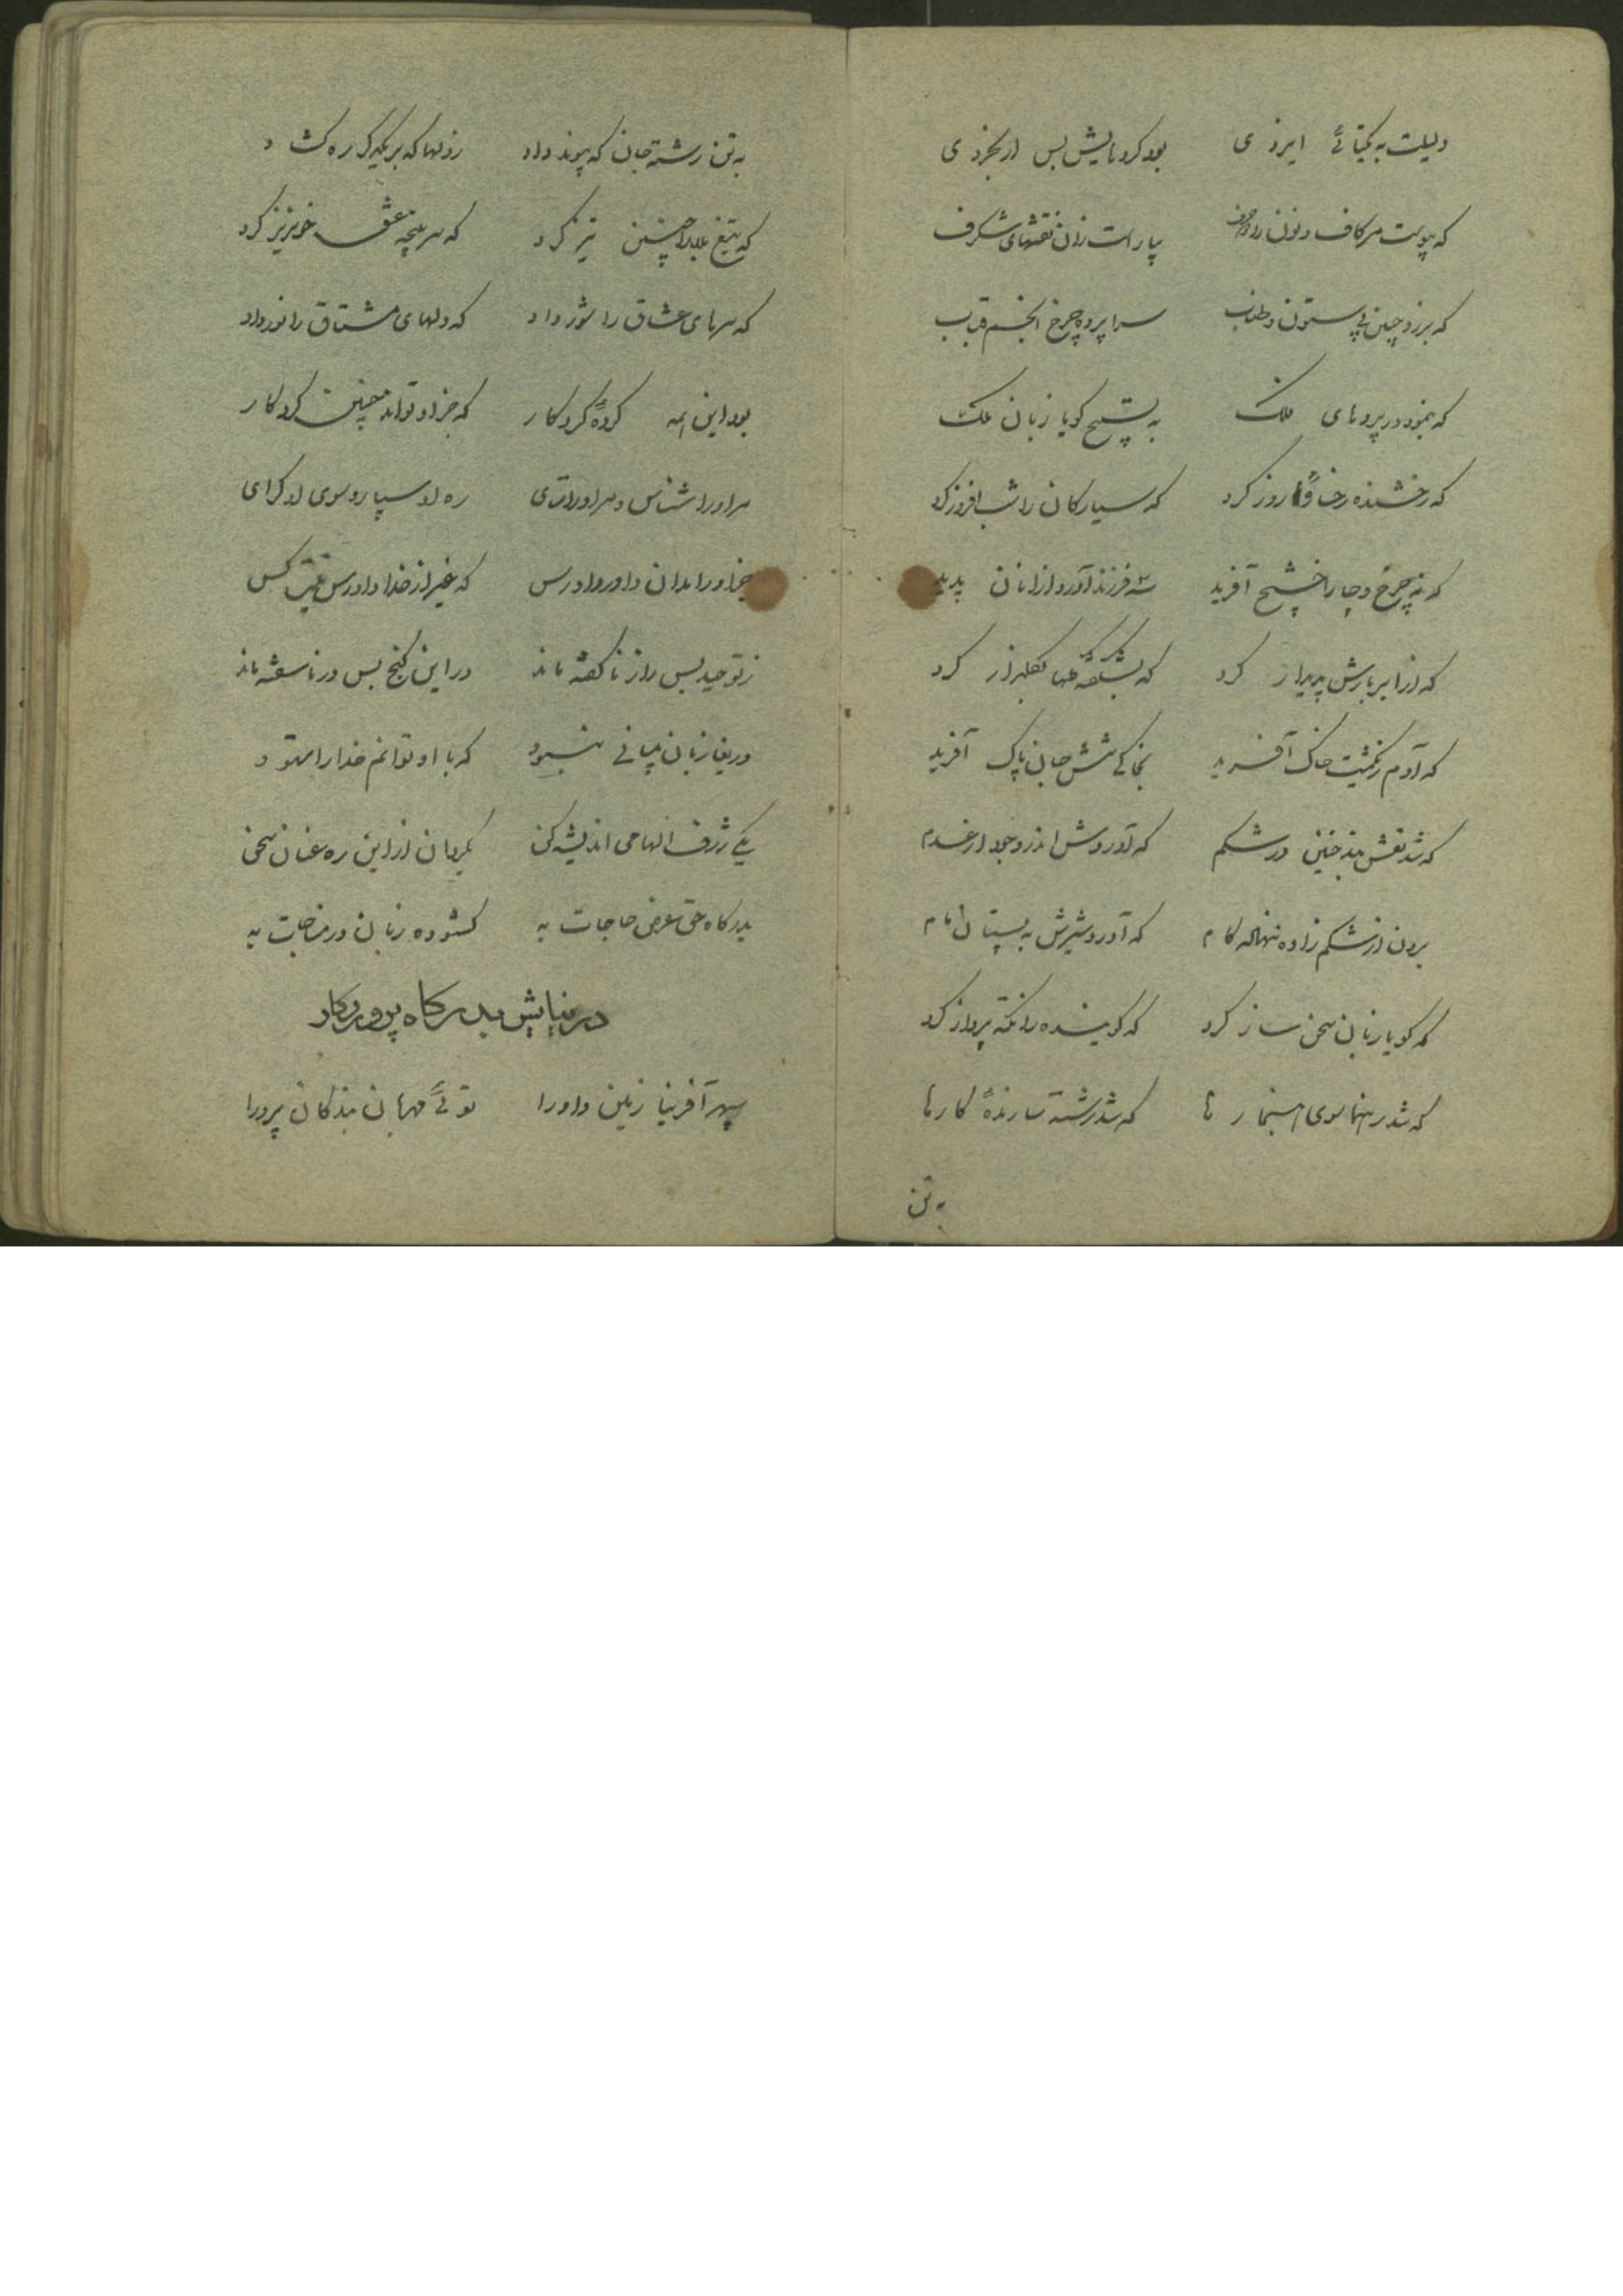 دلیلت به یکتائے ایزدی بود کردهایش بس از بخردی
که پیوست مر کاف و نون را دو حرف بیاراست زان نقشهای شگرف
که برزد چنین بی ستون و طناب سراپرده چرخ انجم قباب
که بنمود در پردهای فلک به تسبیح گویا زبان ملک
که رخشنده رخساره روز کرد که سیارکان را شب افروز کرد
که نه چرخ و چار آخشیج آفرید سه فرزند آورد از آنان پدید
که از ابر بارش پدیدار کرد که بشکفته گلها بگلزار کرد
که آدم ز یکمشت خاک آفرید بخاکے تنش جان پاک آفرید
که شد نقش بند جنین در شکم که آوردش اندر وجود از عدم
برون از شکم زاده ننهاده کام که آورد شیرش به پستان مام
که گویا زبان سخن ساز کرد که گوینده را نکته پرداز کرد
که شد رهنما سوی هنجارها که شد رشته سازندهٔ کارها
به تن
به تن رشته جان که پیوند داد ز دلها که بر یکدگر ره گشاد
که تیغ بلا را چنین تیز کرد که سر پنجه عشق خونریز کرد
که سرهای عشاق را شور داد که دلهای مشتاق را نور داد
بود این همه کردهٔ کردکار که جز او تواند چنین کرد کار
مر او را شناس و مر او را ستای ره او سپار و سوی او گرای
جز او را مدان داور و دادرس که غیر از خدا دادرس نیست کس
ز توحید بس راز ناگفته ماند در این گنج بس در ناسفته ماند
دریغا زبان بیانے نبود که با او توانم خدا را ستود
یکے ژرف الهامی اندیشه کن بگردان از این ره عنان سخن
بدرگاه حق عرض حاجات به گشوده زبان در مناجات به
در نیایش بدرگاه پروردکار
سپهر آفرینا زمین داورا توئے مهربان بندگان پرورا